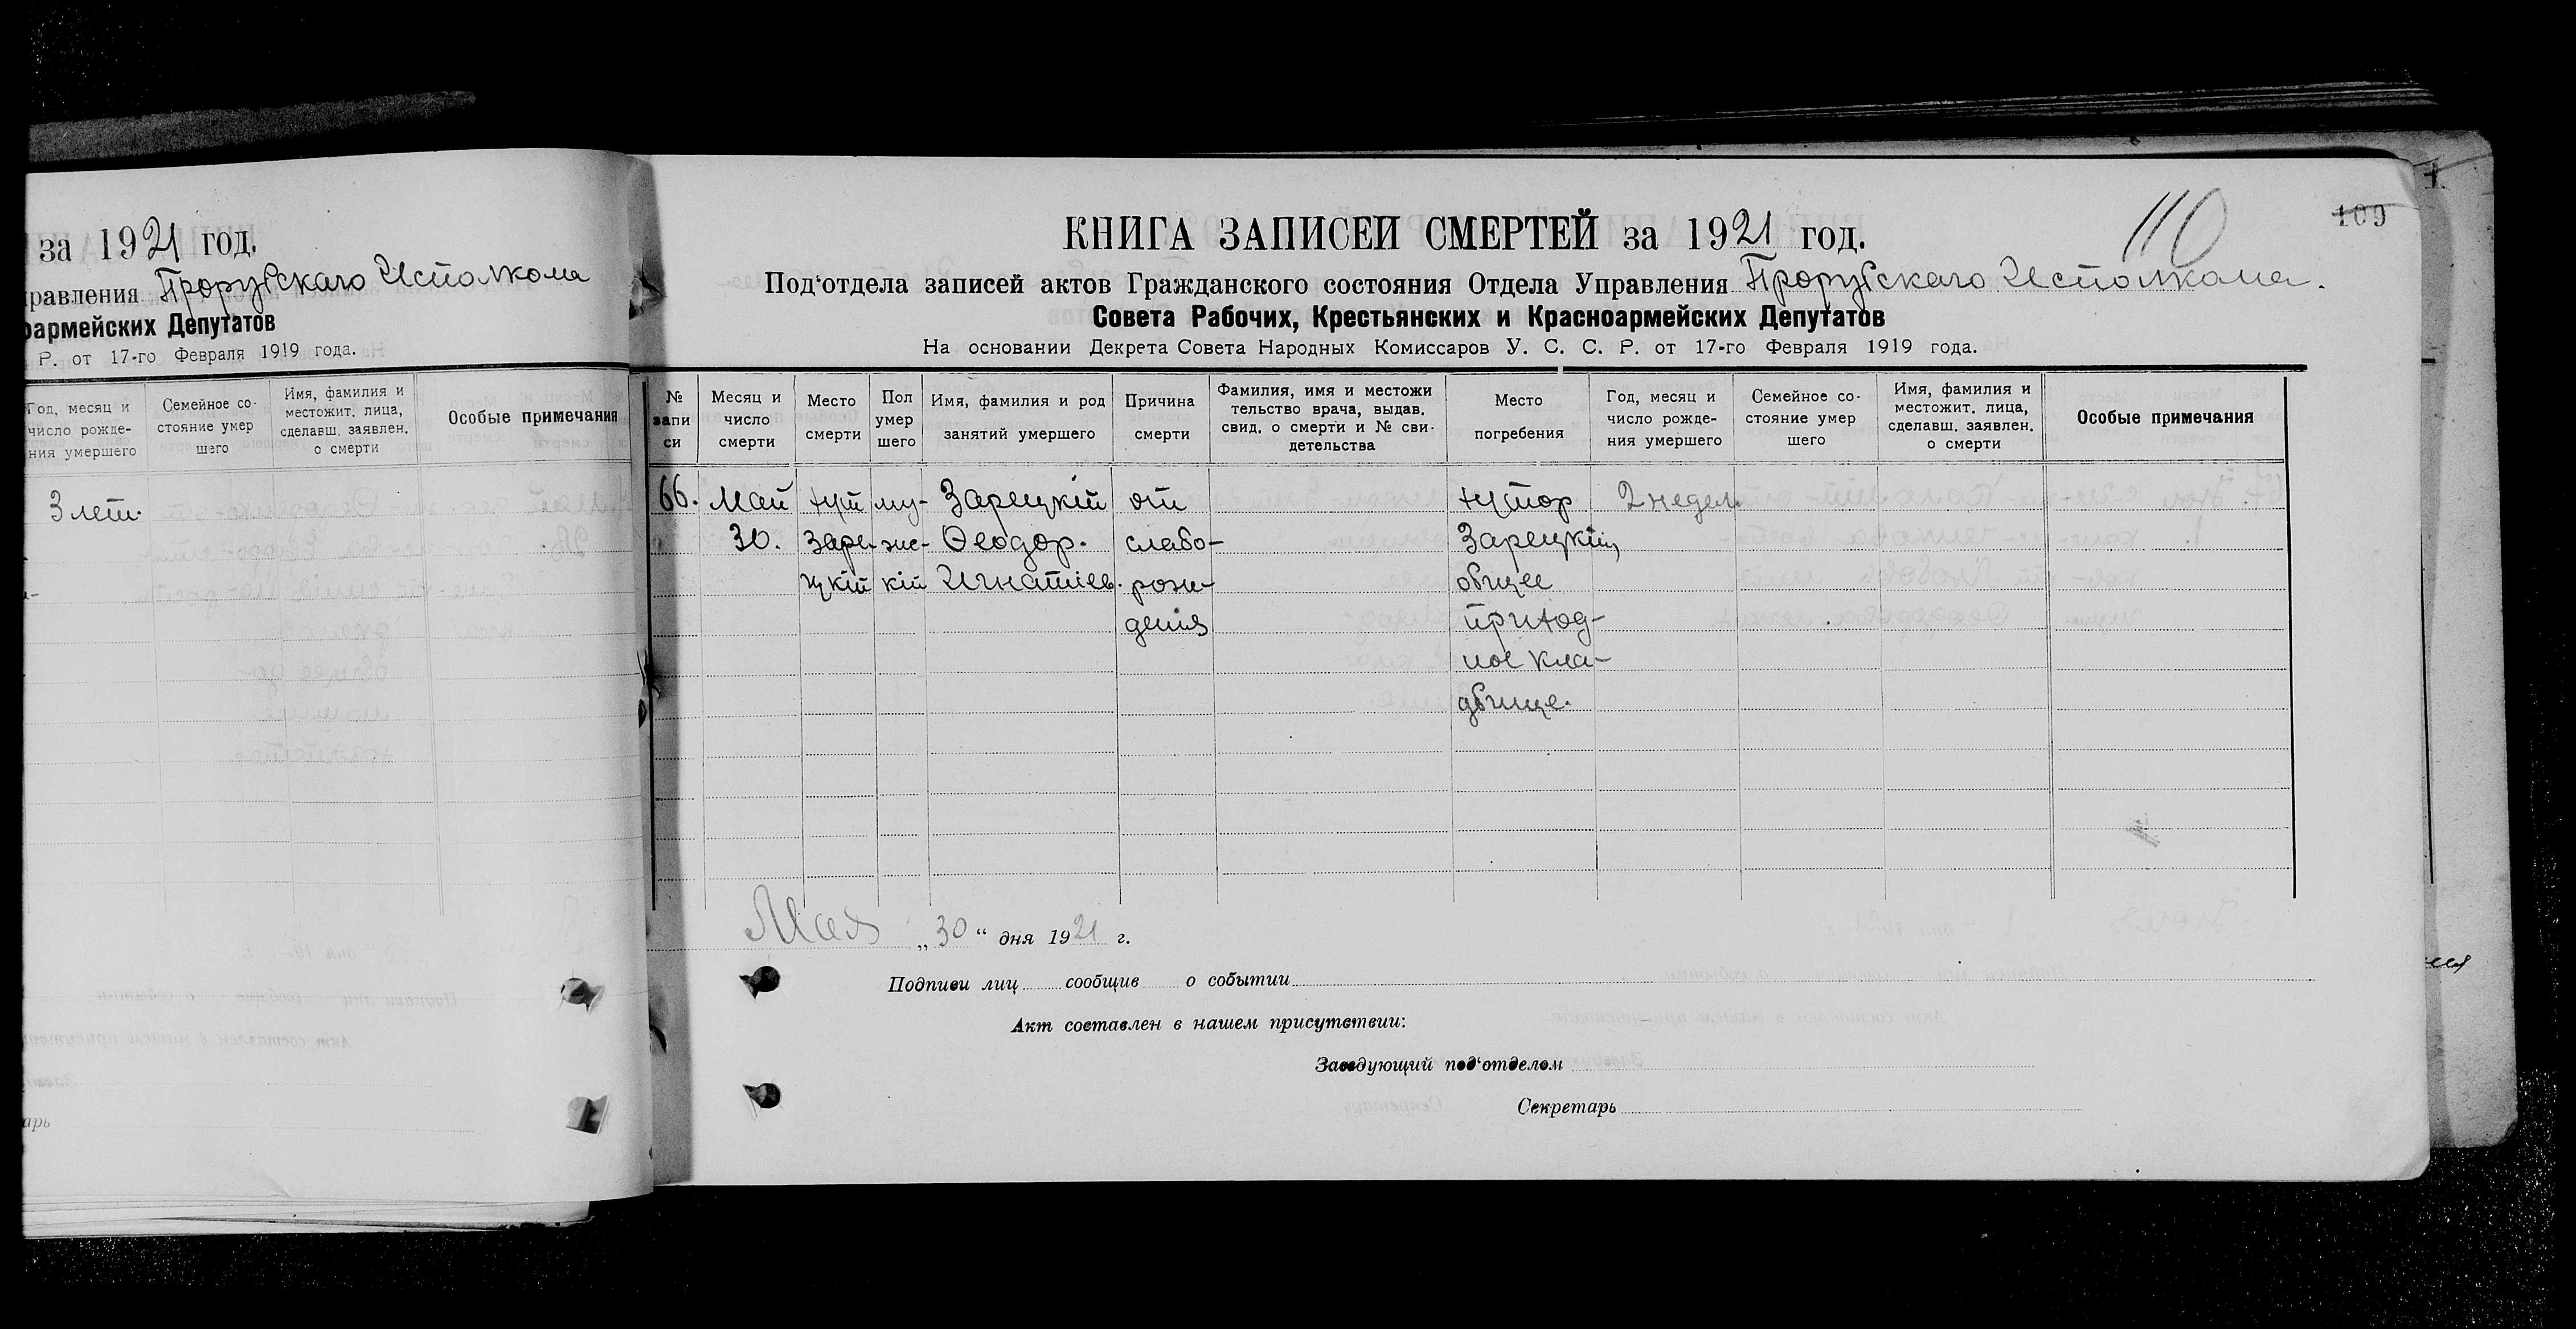 за 1921 год.
равления Прорубскаго Исполкома
оармейских Депутатов
Р. от 17-го Февраля 1919 года.
Год, месяц и
число рожде-
ния умершего
Семейное со-
стояние умер
шего
Имя, фамилия и
местожит. лица,
сделавш. заявлен.
о смерти
Особые примечания
3 лет.
арь
110
109
КНИГА ЗАПИСЕЙ СМЕРТЕЙ за 1921 год.
Под‘отдела записей актов Гражданского состояния Отдела Управления Прорубскаго Исполкома.
Совета Рабочих, Крестьянских и Красноармейских Депутатов
На основании Декрета Совета Народных Комиссаров У. С. С. Р. от 17-го Февраля 1919 года.
№
запи
си
Месяц и
число
смерти
Место
смерти
Пол
умер
шего
Имя, фамилия и род
занятий умершего
Причина
смерти
Фамилия, имя и местожи
тельство врача, выдав.
свид. о смерти и № сви-
детельства
Место
погребения
Год, месяц и
число рожде-
ния умершего
Семейное со-
стояние умер
шего
Имя, фамилия и
местожит. лица,
сделавш. заявлен.
о смерти
Особые примечания
66.
Май
30.
хут
Заре-
цкій
му-
жс-
кій
Зарецкій
Ѳеодор.
Игнатіев.
от
слабо-
рож-
дения
хутор
Зарецкій,
общее
приход-
ное кла-
дбище.
2 недел.
Мая „30“ дня 1921 г.
Подписи лиц сообщив о событии
Акт составлен в нашем присутствии:
Заведующий под‘отделом
Секретарь